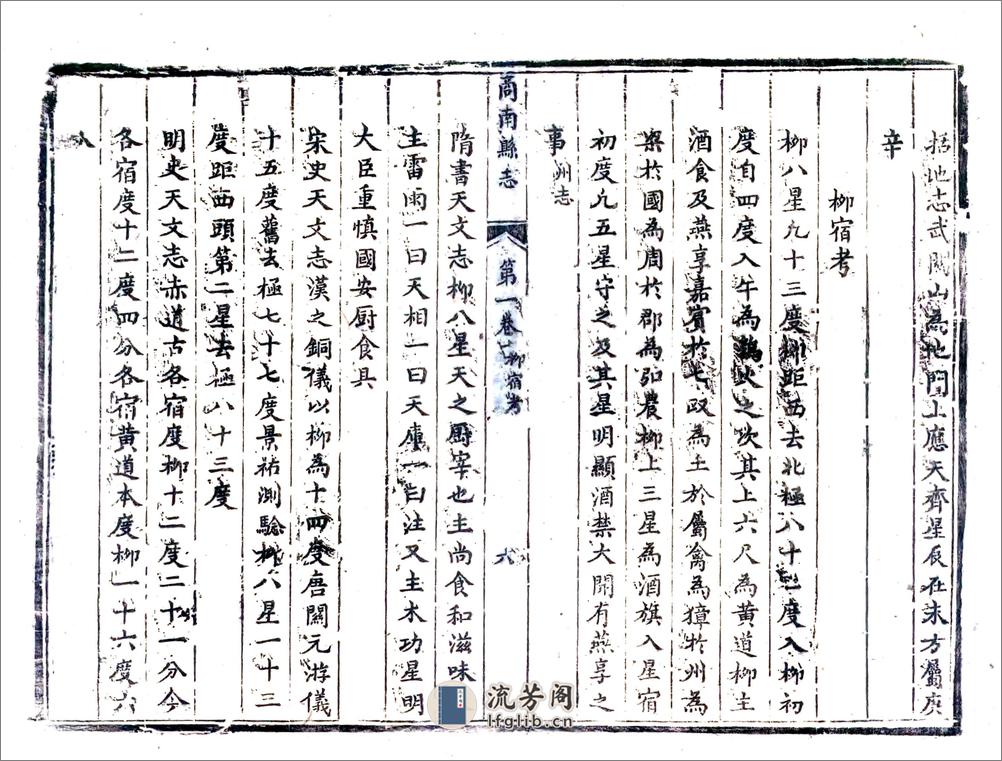 括地志武關山為地門上應天齊星辰在未方屬庚
辛
柳宿考
柳八星九十三度柳距西去北極八十二度入柳初
度自四度入午為鶉火之次其上六尺為黃道柳主
酒食及燕享嘉賓於七政為土於屬禽為獐於州為
於國為周於郡為弘農柳上三星為酒旗入星宿
初度九五星守之及其星明顯酒禁大開有燕享之
事州志
商南縣志 第一卷 柳宿考 六
隋書天文志柳八星天之厨宰也主尚食和滋味
主雷雨一曰天相一曰天庫一曰注又主木功星明
大臣重慎國安厨食具
宋史天文志漢之銅儀以柳為十四度唐開元游儀
十五度舊去極七十七度景祐測驗柳八星一十三
度距西頭第二星去極八十三度
明史天文志赤道古各宿度柳十二度二十一分今
各宿度十二度四分各宿黃道本度柳一十六度六
流芳阁
lfglib.cn